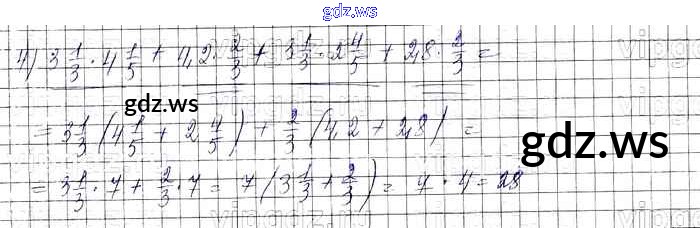 gdz.ws
4) 3 1/3 · 4 1/5 + 4,2 · 2/3 + 3 1/3 · 2 4/5 + 2,8 · 2/3 =
gdz.ws
= 3 1/3 (4 1/5 + 2 4/5) + 2/3 (4,2 + 2,8) =
gdz.ws
= 3 1/3 · 7 + 2/3 · 7 = 7 (3 1/3 + 2/3) = 7 · 4 = 28